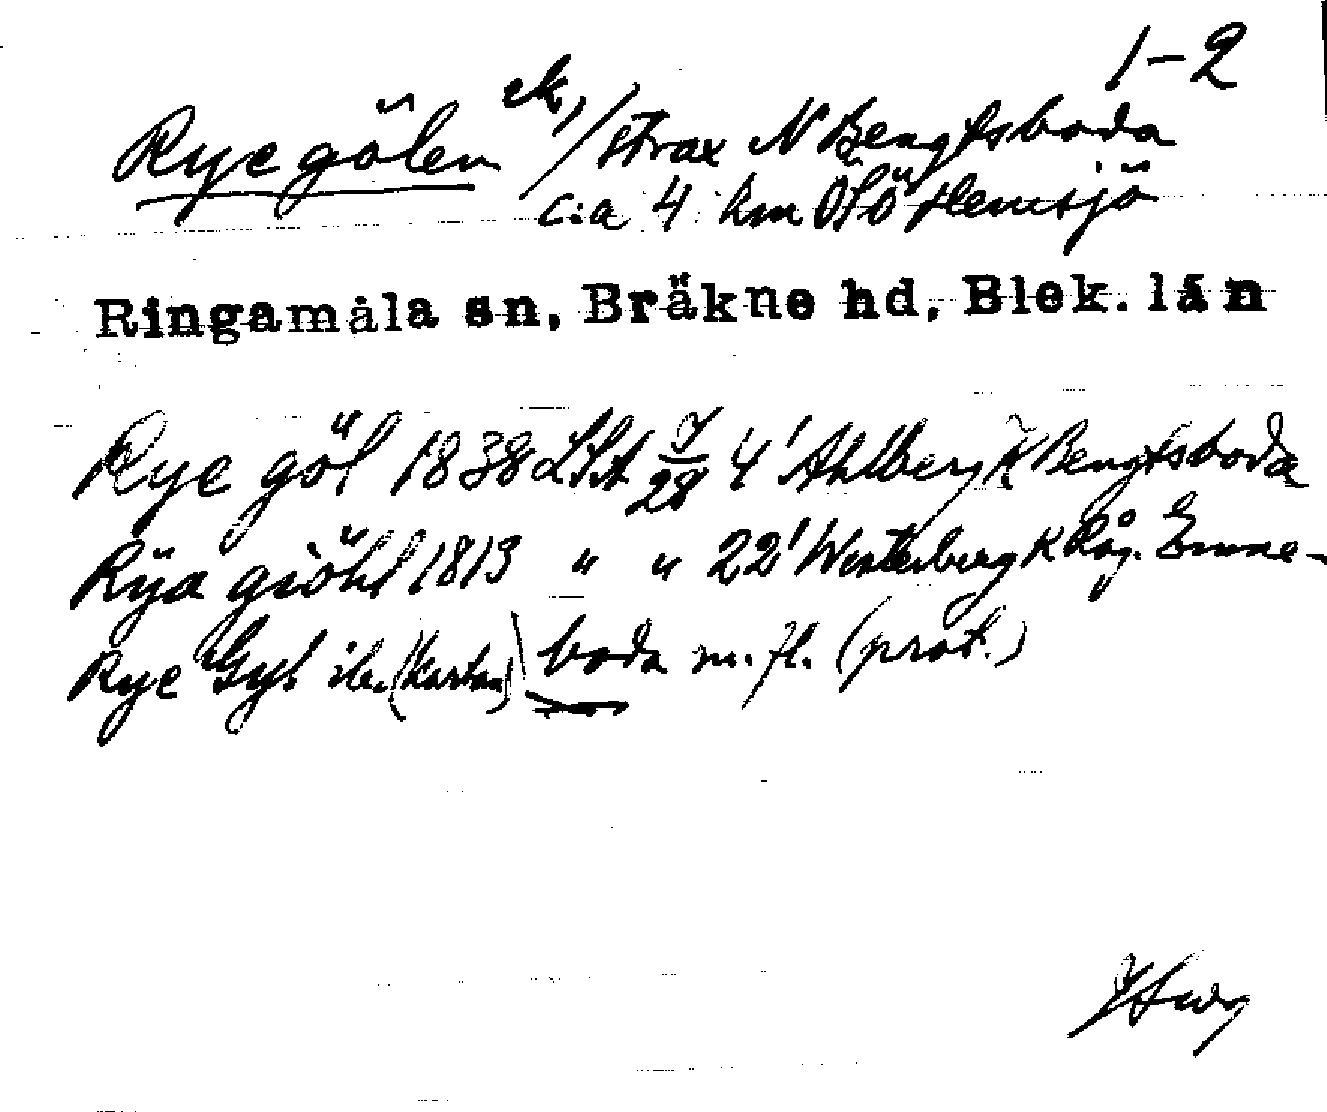 1-2
Ryegölen ek, / strax N Bengtsboda
c:a 4 km OSÖ Hemsjö
Ringamåla sn, Bräkne hd, Blek. län
Rye göl 1838 LSA 7/28 4' Ahlberg K Bengtsboda
Rÿa giöhl 1813 " " 22' Westerberg K Råg. Emne-
Rye Gyl ib. (kartan) boda m.fl. (prot.)